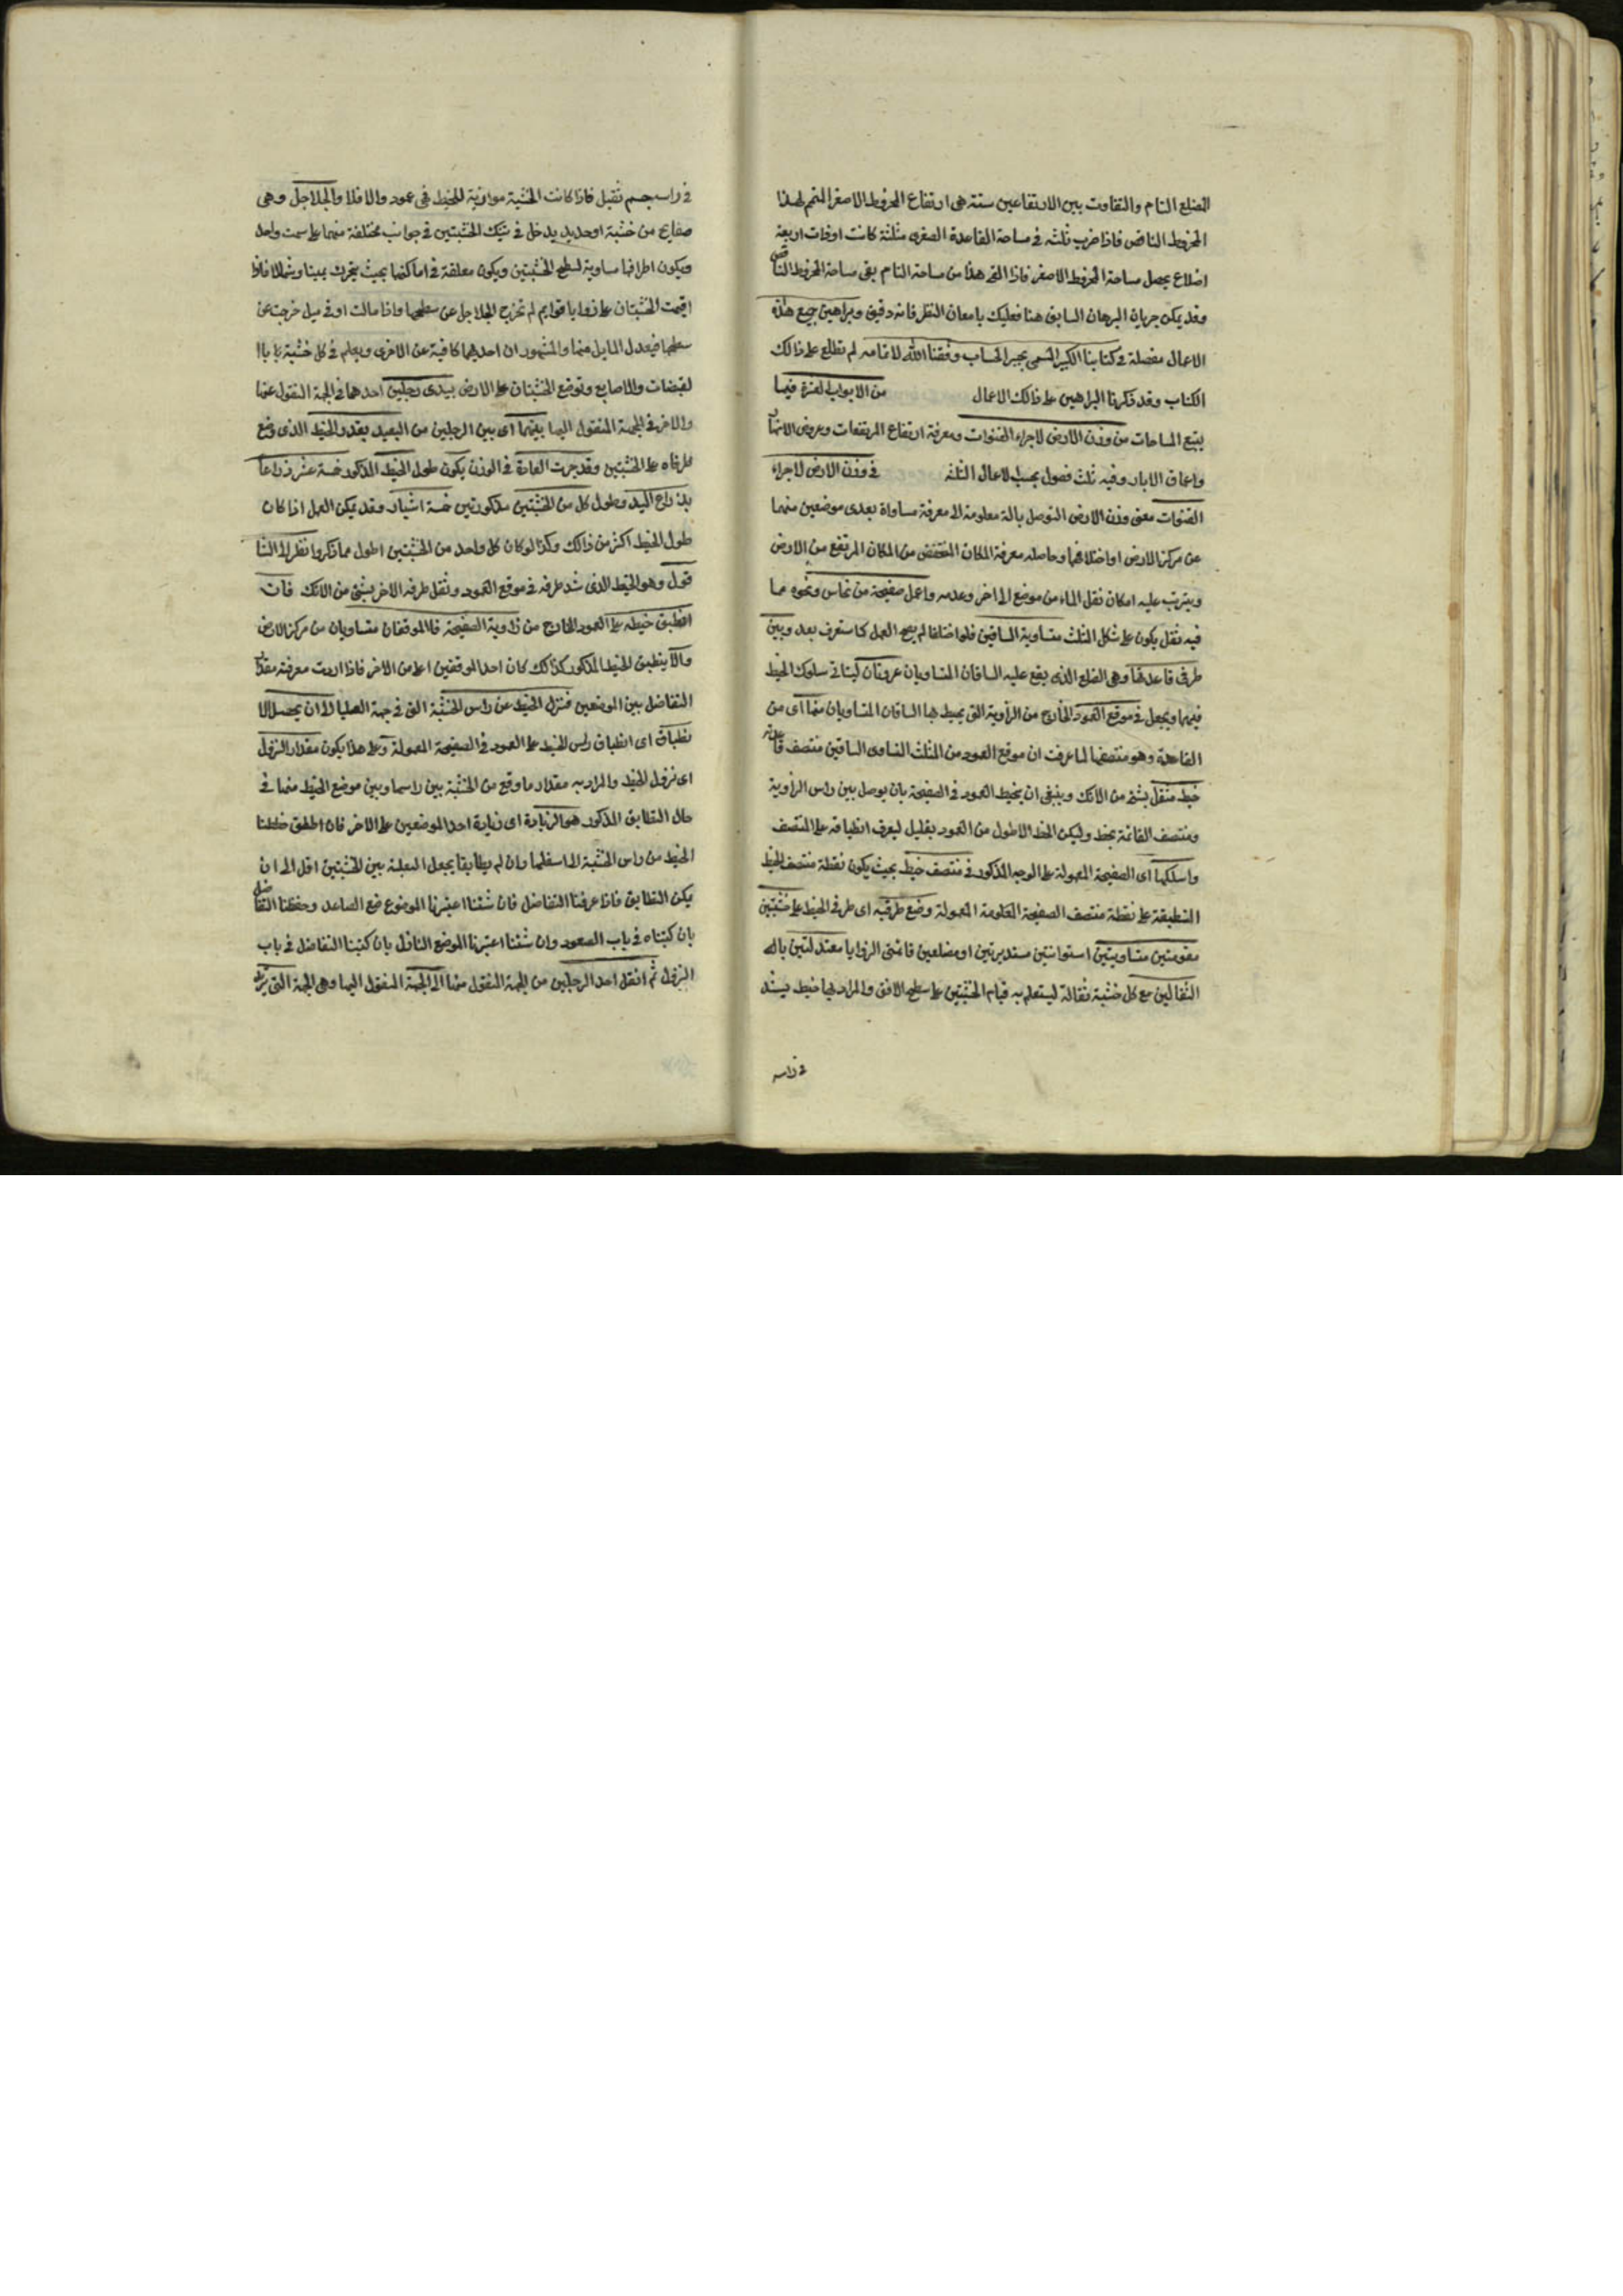 الضلع التام والتفاوت بين الارتفاعين ستة هى ارتفاع المخروط الاصغر المتمم لهذا
المخروط الناقص فاذا ضرب ثلثه فى مساحة القاعدة الصغرى مثلثة كانت اوذات اربعة
اضلاع يحصل مساحة المخروط الاصغر فاذا القى هذا من مساحة التام بقى مساحة المخروط الناقص
وقد يمكن جريان البرهان السابق هنا فعليك بامعان النظر فانه دقيق وبراهين جميع هذه
الاعمال مفصلة فى كتابنا الكبير المسمى ببحر الحساب وفقنا الله لاتمامه لم نطلع على ذالك
الكتاب وقد ذكرنا البراهين على ذالك الاعمال من الابواب العشرة فيما
يتبع المساحات من وزن الارض لاجراء القنوات ومعرفة ارتفاع المرتفعات وعروض الانهار
واعماق الابار وفيه ثلث فصول بحسب الاعمال الثلثه فى وزن الارض لاجراء
القنوات معنى وزن الارض التوصل بالة معلومة الى معرفة مساواة بعدى موضعين منهما
عن مركز الارض او اختلافهما وحاصله معرفة المكان المنخفض من المكان المرتفع من الارض
ويترتب عليه امكان نقل الماء من موضع الى اخر وعدمه واعمل صفيحة من نحاس ونحوه مما
فيه ثقل يكون على شكل المثلث متساوية الساقين فلو اختلفا لم يصح العمل كما ستعرف بعد وبين
طرفى قاعدتها وهى الضلع الذى يقع عليه الساقان المتساويان عروتان ليتاتى سلوك الخيط
فيهما ويجعل فى موقع العمود الخارج من الزاوية التى يحيط بها الساقان المتساويان منها اى من
القاعدة وهو منتصفها لما عرفت ان موقع العمود من المثلث المتساوى الساقين منتصف قاعدته
خيط مثقل بشئ من الانك وينبغى ان يخيط العمود فى الصفيحة بان يوصل بين راس الزاوية
ومنتصف القائمة بخط وليكن الخط الاطول من العمود بقليل ليعرف انطباقه على المنتصف
واسلكها اى الصفيحة المعمولة على الوجه المذكور فى منتصف خيط بحيث يكون نقطة منتصف الخيط
المنطبقة على نقطة منتصف الصفيحة المعمولة وضع طرفيه اى طرفى الخيط على خشبتين
مقومتين متساويتين استوانتين مستديرتين او مضلعين قائمتى الزوايا معتدلتين باله
الثقالين مع كل خشبة ثقالة ليستعلم به قيام الخشبتين على سطح الافق والمراد بها خيط يشد
فى راسه
فى راسه جسم ثقيل فاذا كانت الخشبة موازية للخيط فهى عمود والا فلا والجلاجل وهى
صفايح من خشبة او حديد يدخل فى تينك الخشبتين فى جوانب مختلفة منهما على سمت واحد
ويكون اطرافها مساوية لسطح الخشبتين ويكون معلقة فى اماكنها بحيث يتحرك يمينا وشمالا فاذا
اقيمت الخشبتان على زوايا قوايم لم تخرج الجلاجل عن سطحها واذا مالت او فى ميل خرجت عن
سطحها فيعدل المايل منهما والمشهور ان احديهما كافية عن الاخرى ويعلم فى كل خشبة
لقبضات والاصابع وتوضع الخشبتان على الارض بيدى رجلين احدهما فى الجهة المنقول عنها
والاخر فى الجهة المنقول اليها بينهما اى بين الرجلين من البعد بقدر الخيط الذى وضع
طرفاه على الخشبتين وقد جرت العادة فى الوزن يكون طول الخيط المذكور خمسة عشر ذراعا
بذراع اليد وطول كل من الخشبتين مذكورتين خمسة اشبار وقد يمكن العمل اذا كان
طول الخيط اكثر من ذالك وكذا لو كان كل واحد من الخشبتين اطول مما ذكروا نظر الى الشا
قول وهو الخيط الذى شد طرفه فى موقع العمود وثقل طرفه الاخر بشئ من الانك فان
انطبق خيطه على العمود الخارج من زاوية الصفيحة فالموقعان متساويان من مركز الارض
والا ينطبق الخيط المذكور كذالك كان احد الموقفين اعلى من الاخر فاذا اردت معرفة مقدار
التفاضل بين الموضعين فتنزل الخيط عن راس الخشبة التى فى جهة العليا الى ان يحصل الا
نطباق اى انطباق راس الخيط على العمود فى الصفيحة المعمولة وعلى هذا يكون مقدار النزول
اى نزول الخيط والمراد به مقدار ما وقع من الخشبة بين راسها وبين موضع الخيط منها فى
حال التطابق المذكور هو الزيادة اى زيادة احد الموضعين على الاخر فان اطبق حططنا
الخيط من راس الخشبة الى اسفلها وان لم يطابقا يجعل البعد بين الخشبتين اقل الى ان
يمكن التطابق فاذا عرفنا التفاضل فان شئنا اعتبرنا الموضوع ضع الصاعد وحفظنا التفاضل
بان كتبناه فى باب الصعود وان شئنا اعتبرنا الموضع النازل بان كتبنا التفاضل فى باب
النزول ثم انقل احد الرجلين من الجهة المنقول منها الى الجهة المنقول اليها وهى الجهة التى